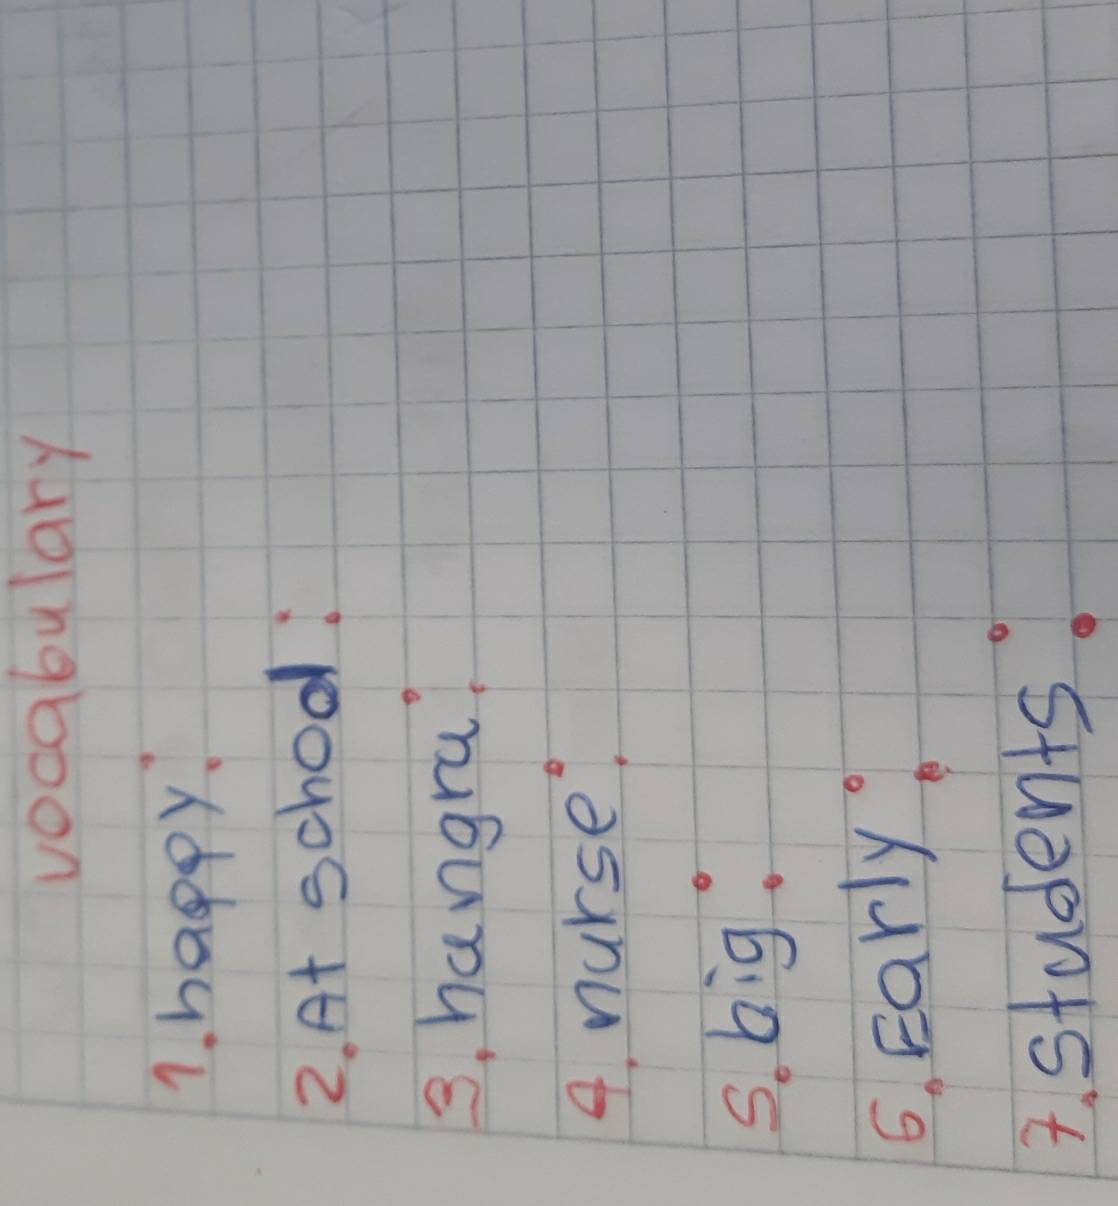 vocabulary
1. happy:
2. At school:
3. hungry:
4. nurse:
5. big:
6. Early:
7. Students: